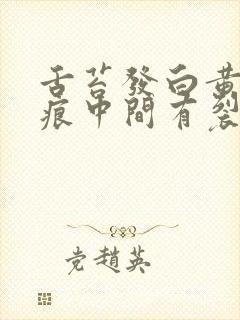 舌苔發白黄
痕中間有裂
党趙英